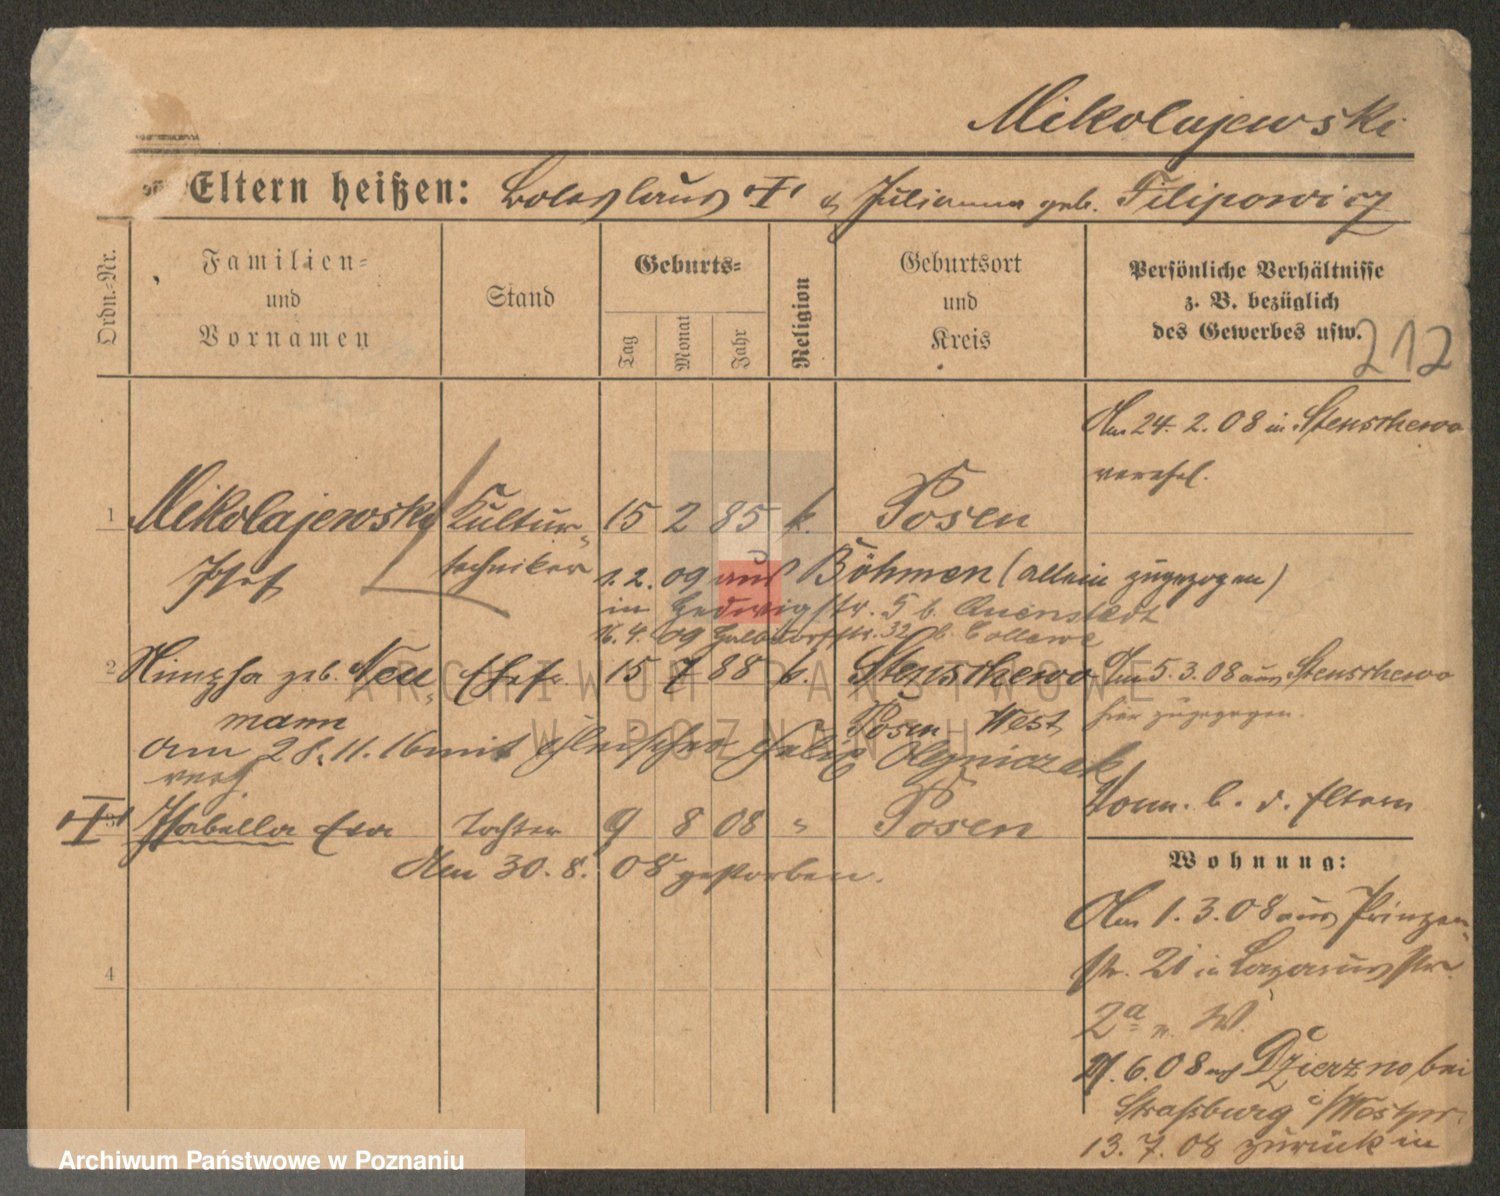 Mikolajewski
Eltern heißen: Boleslaus & Julianna geb. Filipowicz
Ordn.-Nr.
Familien-
und
Vornamen
Stand
Geburts-
Tag
Monat
Jahr
Religion
Geburtsort
und
Kreis
Persönliche Verhältnisse
z. B. bezüglich
des Gewerbes usw.
212
Am 24. 2. 08 in Stenschewo
verehel.
1 Mikolajewski Kultur- 15 2 85 k. Posen
Josef techniker 1. 2. 09 aus Böhmen (allein zugezogen)
in Hedwigstr. 5 b. Auenstedt
16. 4. 09 Halbdorfstr. 32 b. Collewe
2 geb. Neu- Ehefr. 15 7 88 k. Stenschewo Am 5. 3. 08 aus Stenschewo
mann Posen West hier zugezogen.
am 28. 11. 16 mit Fleischer Felix Olejniczak
verh.
3 Isabella Eva Tochter 9 8 08 " Posen
Am 30. 8. 08 gestorben.
b. d. Eltern
Wohnung:
Am 1. 3. 08 aus Prinzen-
str. 21 in Lazarusstr.
2a n. W.
21. 6. 08 nach Dzierzno bei
Straßburg i/Westpr.
13. 7. 08 zurück in
4
ARCHIWUM PAŃSTWOWE
W POZNANIU
Archiwum Państwowe w Poznaniu